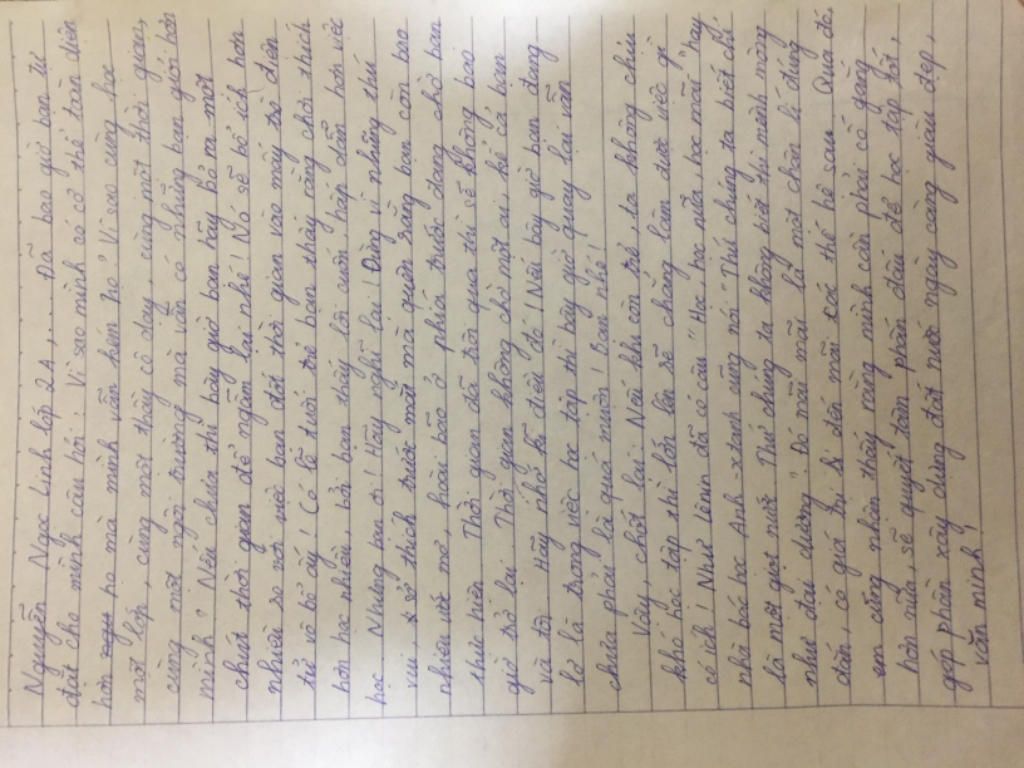 Nguyễn Ngọc Linh lớp 2A,.... Đã bao giờ bạn tự
đặt cho mình câu hỏi: Vì sao mình có có thể toàn diện
hơn họ mà mình vẫn kém họ? Vì sao cùng học
một lớp, cùng một thầy cô dạy, cùng một thời gian,
cùng một ngôi trường mà vẫn có những bạn giỏi hơn
mình? Nếu chưa thì bây giờ bạn hãy bỏ ra một
chút thời gian để ngẫm lại nhé! Nó sẽ bổ ích hơn
nhiều so với việc bạn đốt thời gian vào mấy trò điện
tử vô bổ ấy! Có lẽ tuổi trẻ bạn thấy rằng chơi thích
hơn học nhiều bởi bạn thấy lôi cuốn hấp dẫn hơn việc
học. Nhưng bạn ơi! Hãy nghĩ lại! Đừng vì những thú
vui, sở thích trước mắt mà quên rằng bạn còn bao
nhiêu ước mơ, hoài bão ở phía trước đang chờ bạn
thực hiện. Thời gian đã trôi qua thì sẽ không bao
giờ trở lại. Thời gian không chờ một ai, kể cả bạn
và tôi. Hãy nhớ kĩ điều đó! Nếu bây giờ bạn đang
lơ là trong việc học tập thì bây giờ quay lại vẫn
chưa phải là quá muộn! Bạn nhé!
Vậy, chốt lại: Nếu khi còn trẻ, ta không chịu
khó học tập thì lớn lên sẽ chẳng làm được việc gì
có ích! Như Lênin đã có câu "Học, học nữa, học mãi" hay
nhà bác học Anh-xtanh cũng nói: "Thứ chúng ta biết chỉ
là một giọt nước. Thứ chúng ta không biết thì mênh mông
như đại dương". Đó mãi mãi là một chân lí đúng
đắn, có giá trị đến mãi các thế hệ sau. Qua đó,
em cũng nhận thấy rằng mình cần phải cố gắng
hơn nữa, sẽ quyết tâm phấn đấu để học tập tốt,
góp phần xây dựng đất nước ngày càng giàu đẹp,
văn minh!